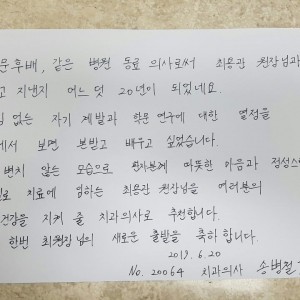 문후배, 같은 병원 동료 의사로써 최용관 원장님과
고 지낸지 어느덧 20년이 되었네요.
없는 자기 계발과 학문 연구에 대한 열정을
에서 보면 본받고 배우고 싶었습니다.
변치 않는 모습으로 환자분께 따뜻한 마음과 정성스
료 치료에 임하는 최용관 원장님을 여러분의
건강을 지켜 줄 치과의사로 추천합니다.
한번 최원장님의 새로운 출발을 축하 합니다.
2019. 6. 20
No. 20064 치과의사 송병철